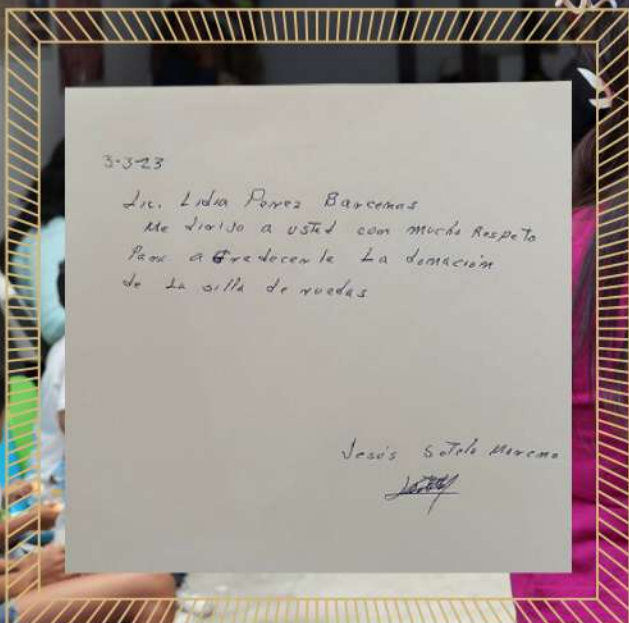 3-3-23
Lic. Lidia Perez Barcenas
Me dirijo a usted con mucho Respeto
Para agradecerle La donación
de La silla de ruedas
Jesús Sotelo Moreno